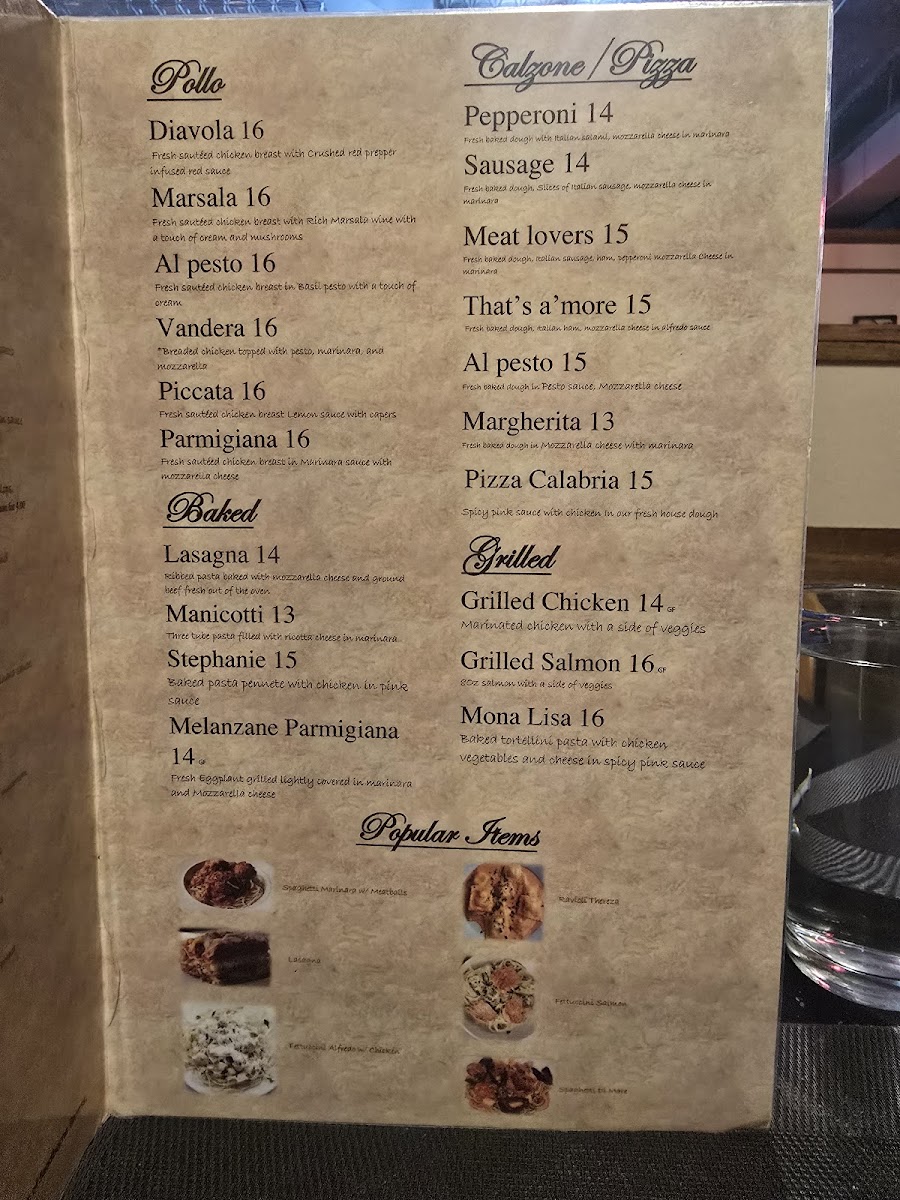 Pollo
Diavola 16
Fresh sautéed chicken breast with Crushed red prepper
infused red sauce
Marsala 16
Fresh sautéed chicken breast with Rich Marsala wine with
a touch of cream and mushrooms
Al pesto 16
Fresh sautéed chicken breast in Basil pesto with a touch of
cream
Vandera 16
*Breaded chicken topped with pesto, marinara, and
mozzarella
Piccata 16
Fresh sautéed chicken breast Lemon sauce with capers
Parmigiana 16
Fresh sautéed chicken breast in Marinara sauce with
mozzarella cheese
Baked
Lasagna 14
Ribbed pasta baked with mozzarella cheese and ground
beef fresh out of the oven
Manicotti 13
Three tube pasta filled with ricotta cheese in marinara
Stephanie 15
Baked pasta pennete with chicken in pink
sauce
Melanzane Parmigiana
14 GF
Fresh Eggplant grilled lightly covered in marinara
and Mozzarella cheese
Calzone/Pizza
Pepperoni 14
Fresh baked dough with Italian salami, mozzarella cheese in marinara
Sausage 14
Fresh baked dough, Slices of Italian sausage, mozzarella cheese in
marinara
Meat lovers 15
Fresh baked dough, Italian sausage, ham, pepperoni mozzarella Cheese in
marinara
That's a'more 15
Fresh baked dough, Italian ham, mozzarella cheese in alfredo sauce
Al pesto 15
Fresh baked dough in Pesto sauce, Mozzarella cheese
Margherita 13
Fresh baked dough in Mozzarella cheese with marinara
Pizza Calabria 15
Spicy pink sauce with chicken In our fresh house dough
Grilled
Grilled Chicken 14 GF
Marinated chicken with a side of veggies
Grilled Salmon 16 GF
8Oz salmon with a side of veggies
Mona Lisa 16
Baked tortellini pasta with chicken
vegetables and cheese in spicy pink sauce
Popular Items
Spaghetti Marinara w/ Meatballs
Lasagna
Fettuccini Alfredo w/ Chicken
Ravioli Thereza
Fettuccini Salmon
Spaghetti Di Mare